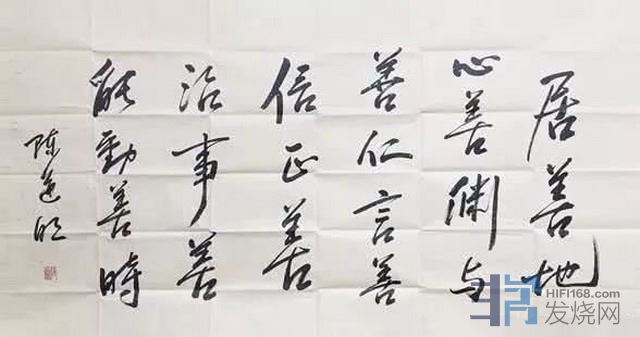 居善地
心善渊与
善仁言善
信正善
治事善
能動善時
陈道明
HIFI168.com
发烧网